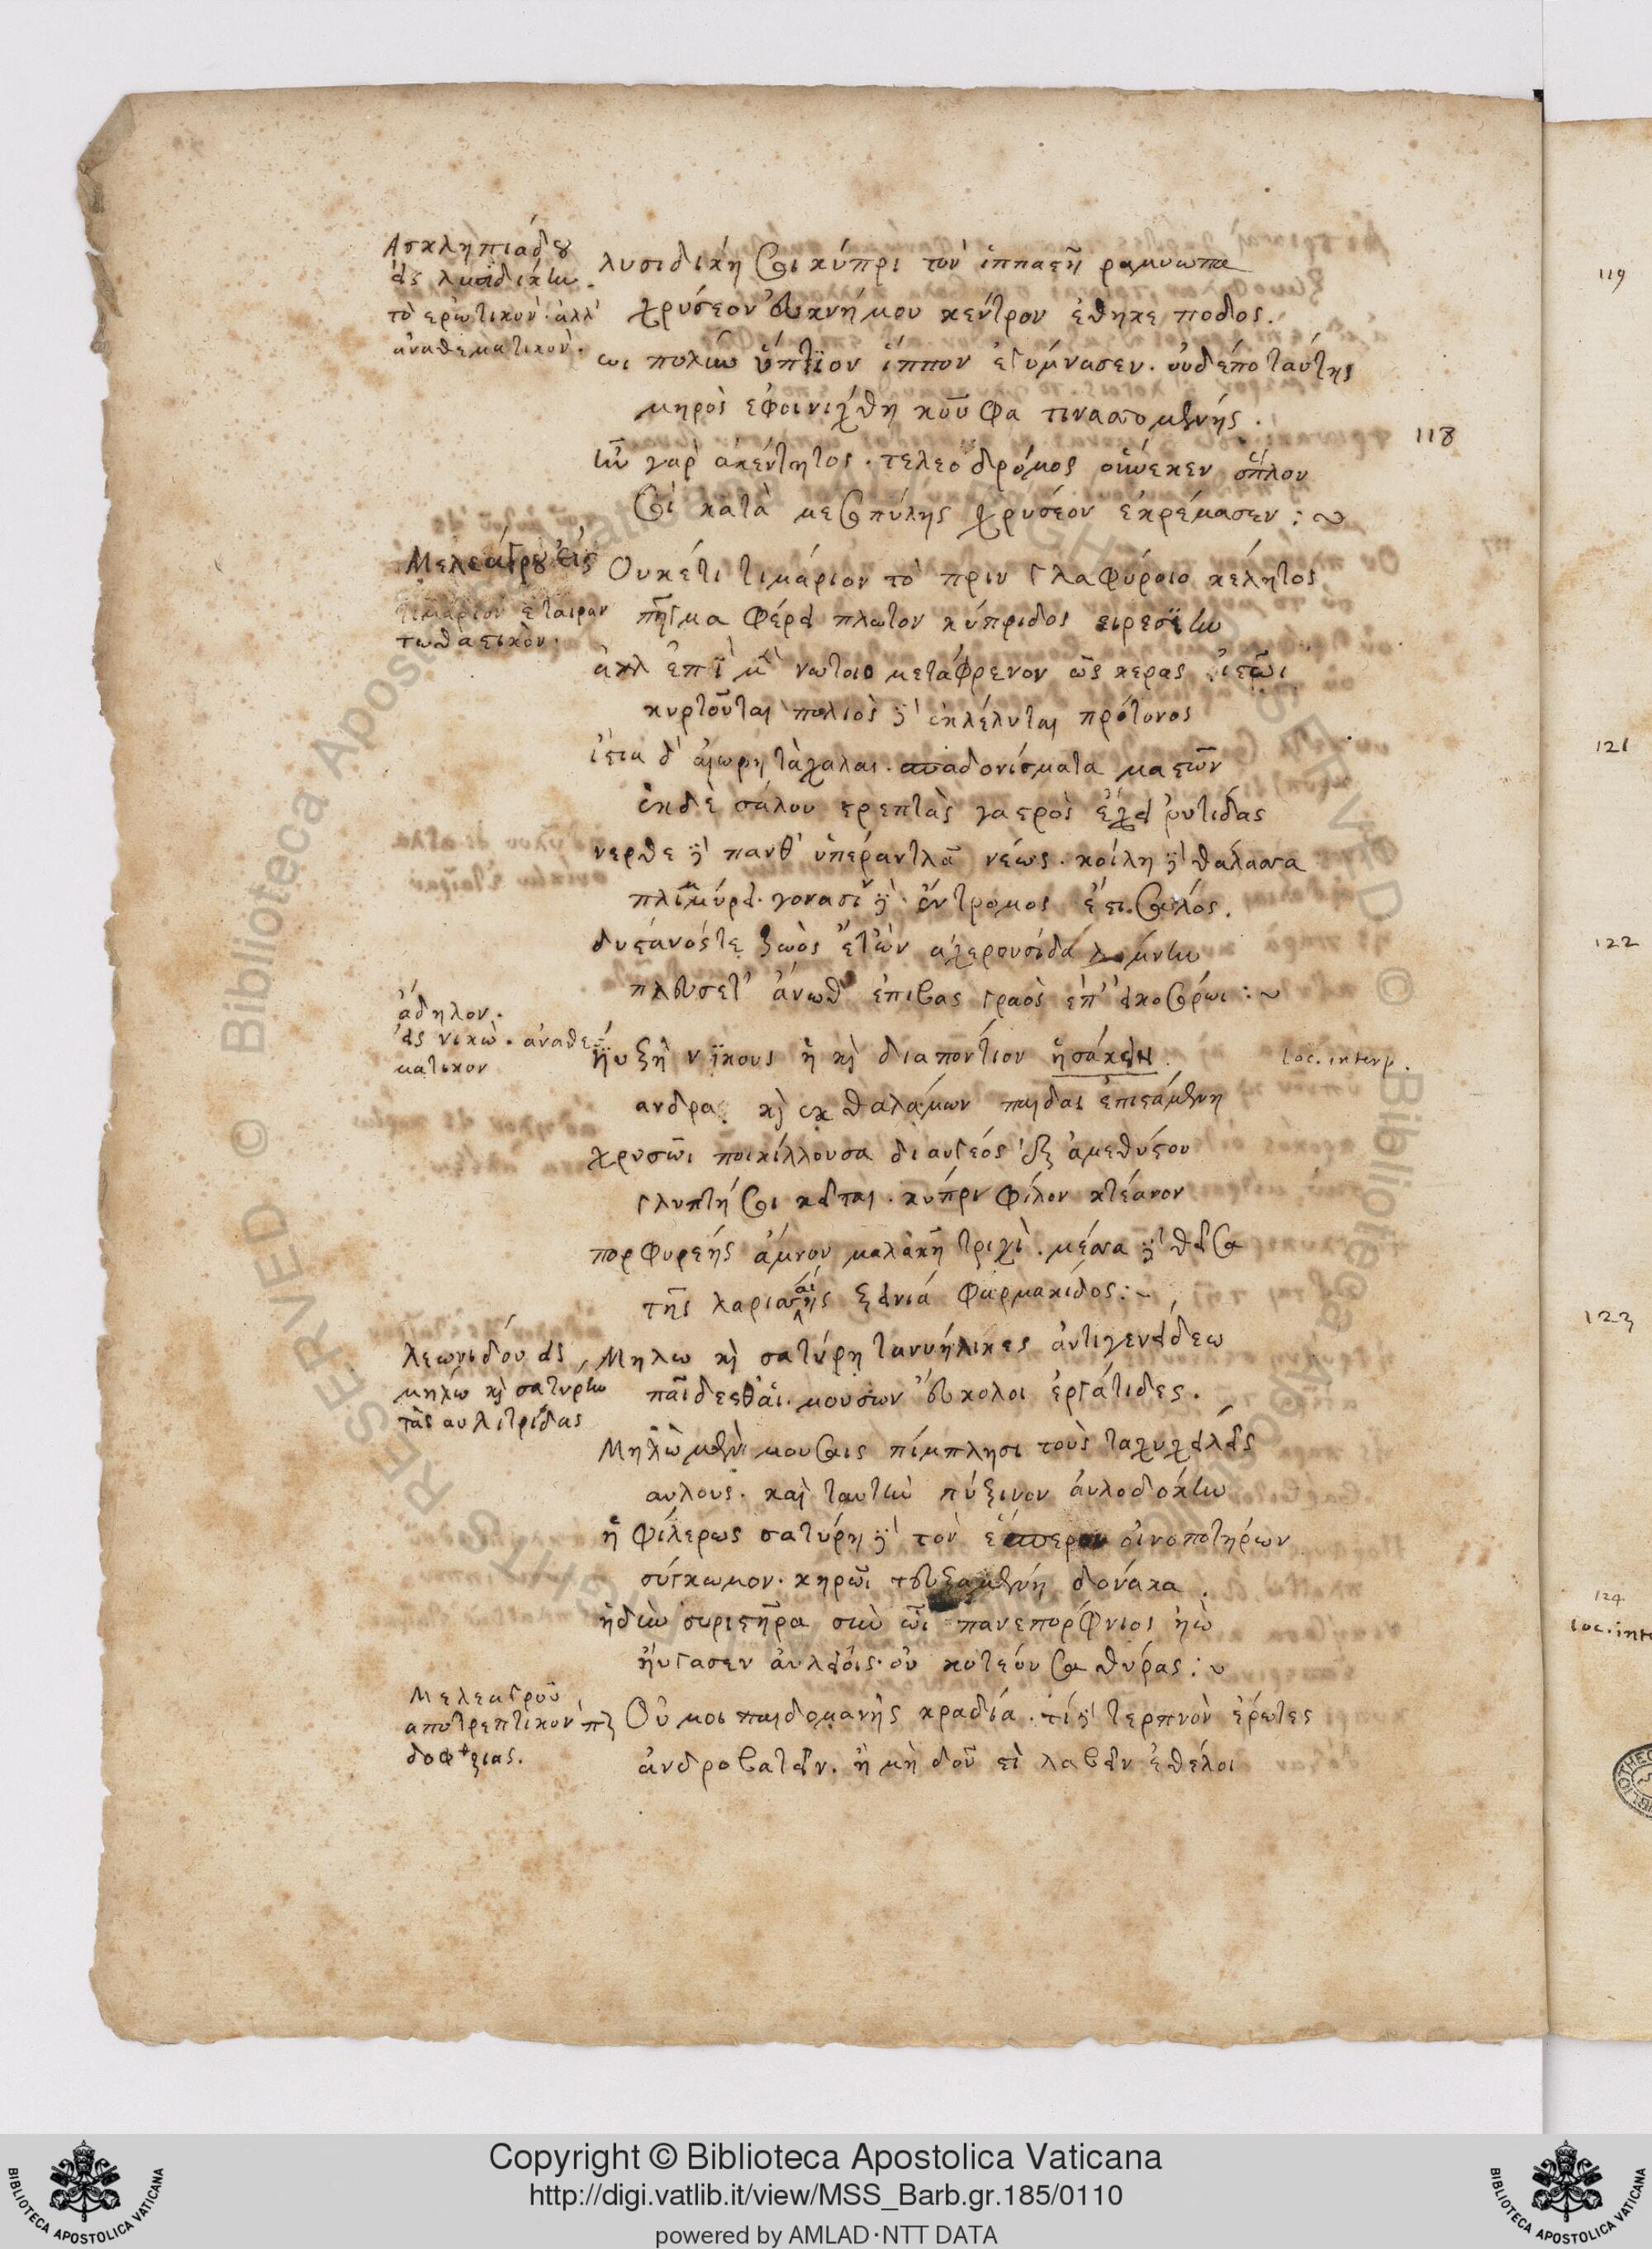 Ασκληπιάδου
εἰς λυσιδίκην.
τὸ ερωτικὸν ἀλλ'
αναθεματικὸν.
λυσιδίκη σοι κύπρι τὸν ἱππαστῆ ραμνωπα
χρύσεον εὐκνήμου κέντρον ἔθηκε ποδος.
ωι πολὺν ὕπτϊον ἵππον ἐγύμνασεν. οὐδέποταύτης
μηρὸς εφοινίχθη κοῦφα τινασσομένης.
ἦν γαρ ακέντητος. τελεοδρόμος οὕνεκεν ὅπλον
σοὶ κατὰ μεσσπύλης χρυσέον εκρέμασεν :~
118
Μελεάγρου εἰς
τιμάριον ἑταιραν
τωθαστικὸν.
Ουκέτι τιμάριον τὸ πριν γλαφύροιο κέλητος
πῆγμα φέρει πλωτον κύπριδος ειρεσΐην
ἀλλ ἐπῒ μὲν νωτοισ μετάφρενον ὡς κερας ἱστῶι
κυρτοῦται πολιὸς δ' ἐκλέλυται πρότονος
ἱστια δ' αἰωρητὰ χαλαι. σπαδονίσματα μαστῶν
ἐκδὲ σάλου στρεπτὰς γαστρὸς ἔχει ρυτιδας
νερθε δὲ πανθ' ὑπέραντλα νέως. κοίλη δὲ θάλασσα
πλήμμύρει. γόνασιν δ' ἔντρομος ἐστι σάλος.
δυστάνόςτε ζωὸς ἔτ' ὼν αχερουσίδα λίμνην
πλεύσετ' ἄνωθ' ἐπιβας γραὸς ἐπ' εἰκοσόρωι :~
ἄδηλον.
εἰς νικὼ. αναθε=
ματικον
ἡυξη νΐκους ἡ καὶ διαποντίον ἡσάκειν.
loc. interp.
ανδρα. καὶ ἐκ θαλάμων παιδας ἐπισταμένη
χρυσῶι ποικίλλουσα διαυγεός ἐξ ἀμεθύστου
γλυπτή σοι κεῖται. κύπρι φίλον κτέανον
πορφυρεής ἀμνου μαλακῆ τριχὶ. μέσσα δὲ θεῖσα
τῆς λαρισσῆς ξεινιά φαρμακίδος :~
αί
λεωνιδου εἰς
μηλὼ καὶ σατυρην
τὰς αυλιτρίδας
Μηλω καὶ σατύρη τανυήλικες ἀντιγενείδεω
παῖδεςθἀἱ. μουσων εὔκολοι ἐργάτιδες.
Μηλὼ μὲν μουσαις πίμπλησι τοὺς ταχυχειλεῖς
αυλους. καὶ ταυτην πύξινον ἀυλοδόκην
ἡ φίλερως σατύρη δὲ τον ἑσπερον οἰνοποτηρων
σύγκωμον. κηρῶι ζευξαμένη δονάκα.
ἡδιὺν συριστῆρα σιὺν ὧι πανεπορφνιος ἠὼ
ἠύγασεν ἀυλείοις. οὐ κοτεόυσα θύρας :~
Μελεαγροῦ
αποτρεπτικον παι
δοφθορίας.
Οὔ μοι παιδομανὴς κραδία. τί δὲ τερπνὸν ἐρωτες
ἀνδροβατεῖν. ἢ μὴ δοῦ εἰ λαβεῖν ἐθέλοι
119
121
122
123
124
loc. inte
Copyright © Biblioteca Apostolica Vaticana
http://digi.vatlib.it/view/MSS_Barb.gr.185/0110
powered by AMLAD·NTT DATA